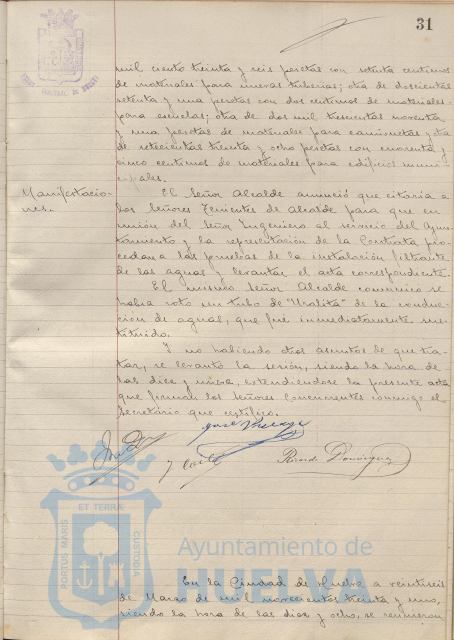 31
mil ciento treinta y seis pesetas con setenta centimos
de materiales para nuevas tuberias; otra de doscientas
setenta y una pesetas con dos centimos de materiales
para escuelas; otra de dos mil trescientas noventa
y una pesetas de materiales para camionetas y otra
de setecientas treinta y ocho pesetas con cuarenta y
cinco centimos de materiales para edificios muni-
cipales.
Manifestacio-
nes.
El Señor Alcalde anunció que citaria a
los Señores Tenientes de Alcalde para que en
unión del Señor Ingeniero al servicio del Ayun-
tamiento y la representación de la Contrata pro-
cedan a las pruebas de la instalación filtrante
de las aguas y levantar el acta correspondiente.
El mismo Señor Alcalde comunicó se
habia roto un tubo de "Uralita" de la conduc-
cion de aguas, que fué inmediatamente sus-
tituido.
Y no habiendo otros asuntos de que tra-
tar, se levantó la sesión, siendo la hora de
las diez y nueve, extendiendose la presente acta
que firman los Señores Concurrentes conmigo el
Secretario que certifico.
Ricardo Dominguez
PORTUS MARIS
ET TERRAE
CUSTODIA
Ayuntamiento de
HUELVA
En la Ciudad de Huelva a veintiseis
de Marzo de mil novecientos treinta y uno,
siendo la hora de las diez y ocho, se reunieron